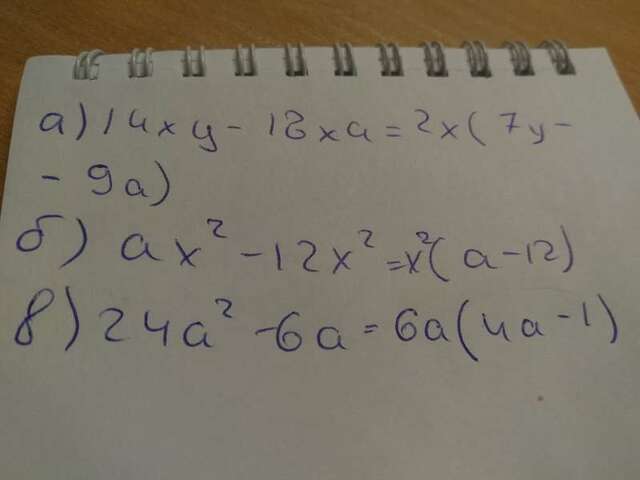 а) 14xy - 18xa = 2x(7y -
- 9a)
б) ax² - 12x² = x²(a - 12)
в) 24a² - 6a = 6a(4a - 1)